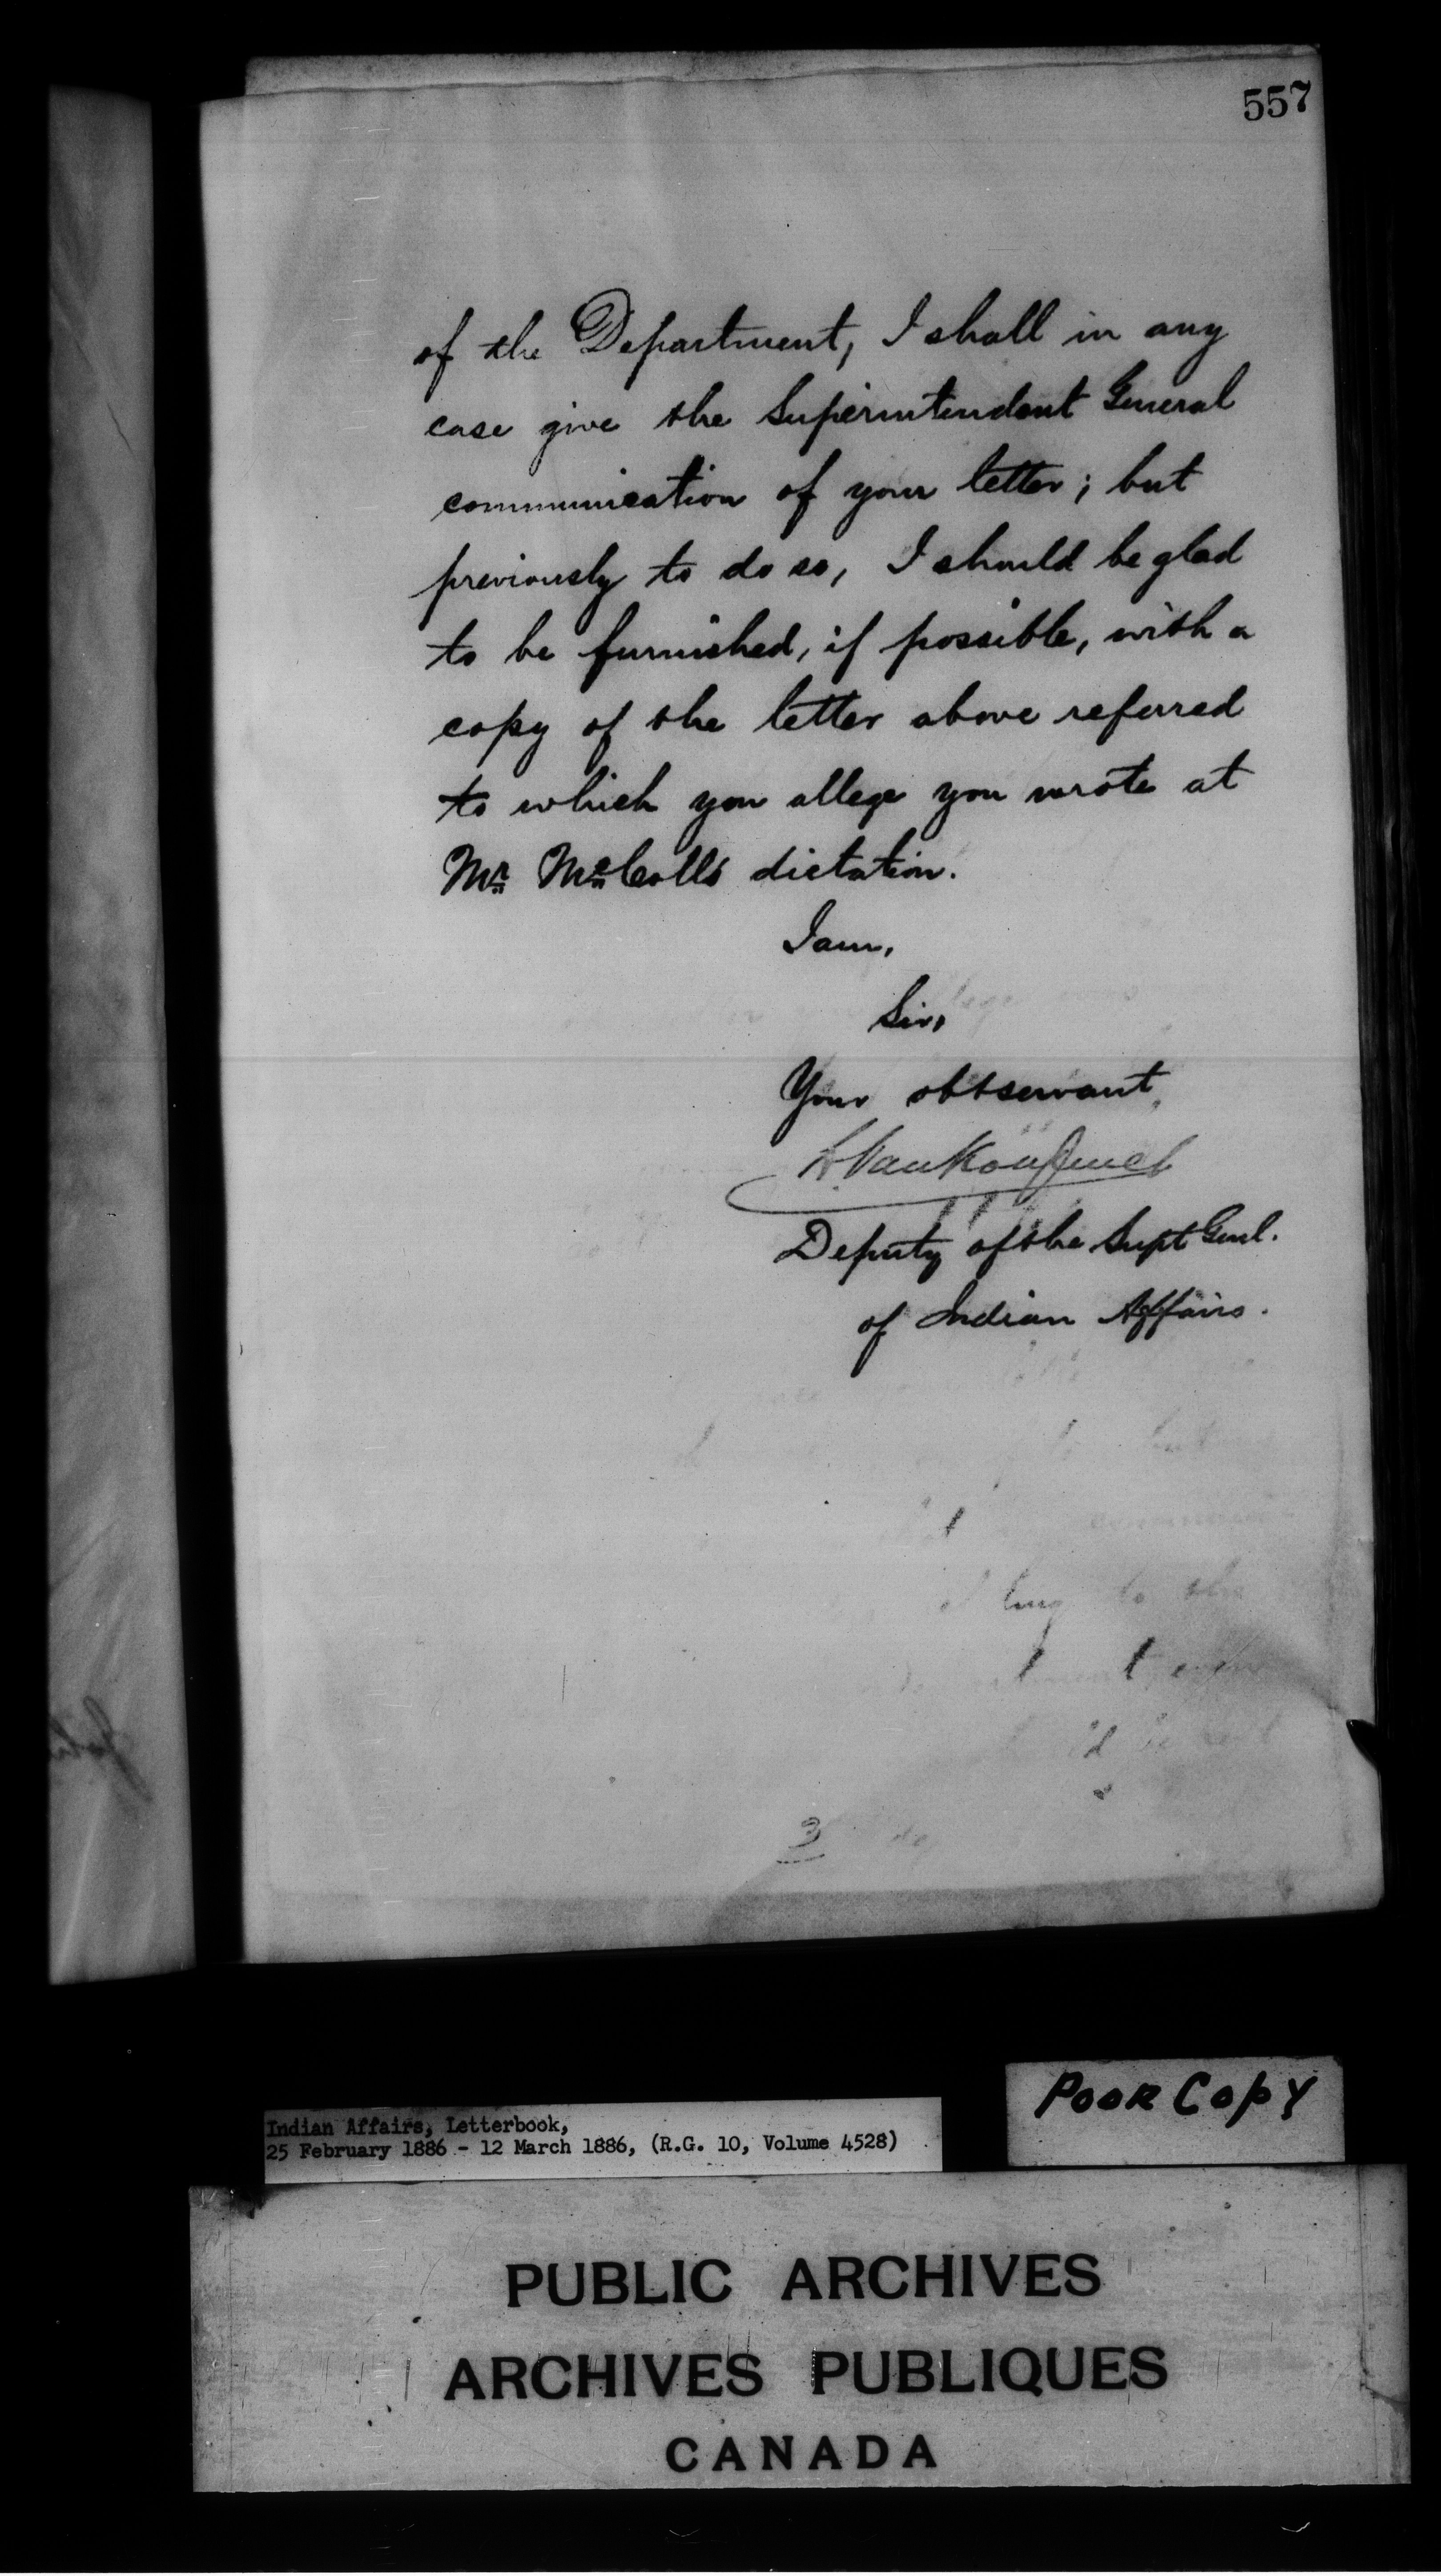 557
of the Department, I shall in any
case give the Superintendent General
communication of your letter; but
previously to do so, I should be glad
to be furnished, if possible, with a
copy of the letter above referred
to which you allege you wrote at
Mr McColl's dictation.
I am,
Sir,
Your obt servant
L. VanKoughnet
Deputy of the Supt Genl.
of Indian Affairs.
3
Poor Copy
Indian Affairs, Letterbook,
25 February 1886 - 12 March 1886, (R.G. 10, Volume 4528)
PUBLIC ARCHIVES
ARCHIVES PUBLIQUES
CANADA